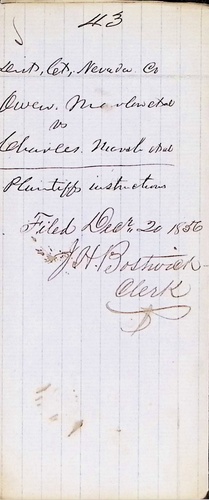 43
Dist, Ct, Nevada Co
Owen. Marlow et al
vs
Charles. Marsh et al
Plaintiffs instructions
Filed Decr. 20 1856
J. H. Bostwick
Clerk